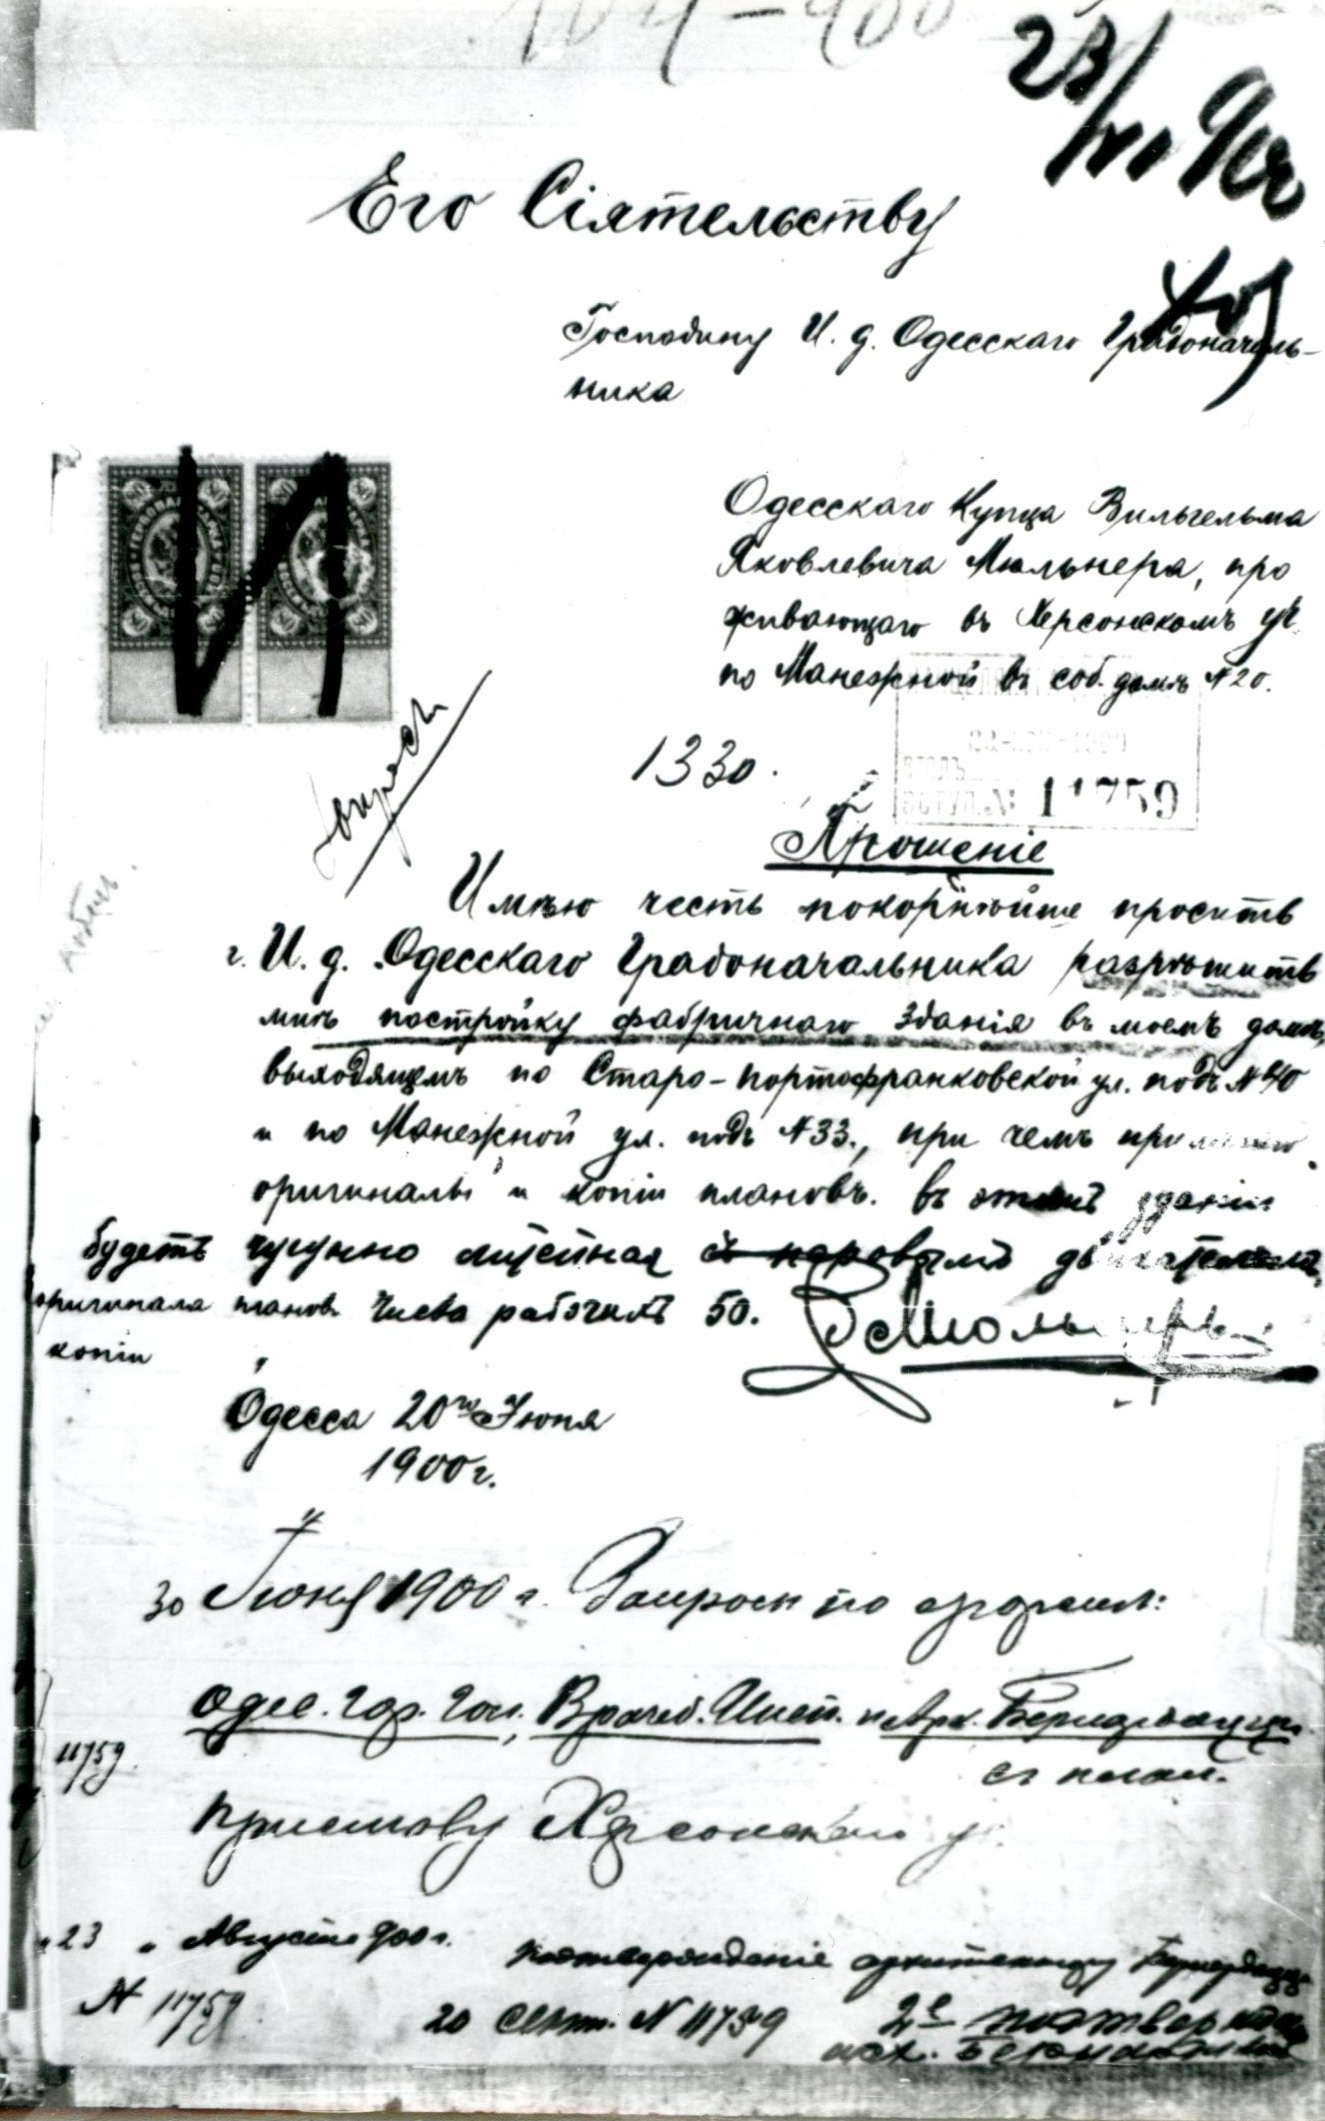 104-900
23/VI 900
Его Сіятельству
Господину И. д. Одесскаго Градоначаль-
ника
Одесскаго Купца Вильгельма
Яковлевича Мюльнера, про
живающаго въ Херсонскомъ уч.
по Манежной въ соб. домѣ №20.
1330.
ВСТУП. № 11759
Прошеніе
Имѣю честь покорнѣйше просить
г. И. д. Одесскаго Градоначальника разрѣшить
мнѣ постройку фабричнаго зданія въ моемъ домѣ,
выходящемъ по Старо-портофранковской ул. подъ №40
и по Манежной ул. подъ №33., при чемъ
оригиналы и копіи плановъ. Въ этомъ зданіи
будетъ чугунно литейная съ паровымъ двигателемъ
оригинала планов. Числа рабочихъ 50. В Мюльнеръ
копіи
Одесса 20го Іюня
1900г.
30 Іюня 1900 г. Запросъ по
Одес. гор. Гол., Врачеб. Инсп. и Арх. Бернардацци
съ план.
11759.
Приставу Херсонскаго уч.
"23 " Августа 900 г. подтвержденіе архитектору Бернардацци
№ 11759
20 Сент. № 11759 2е подтвержд.
арх. Бернардацци